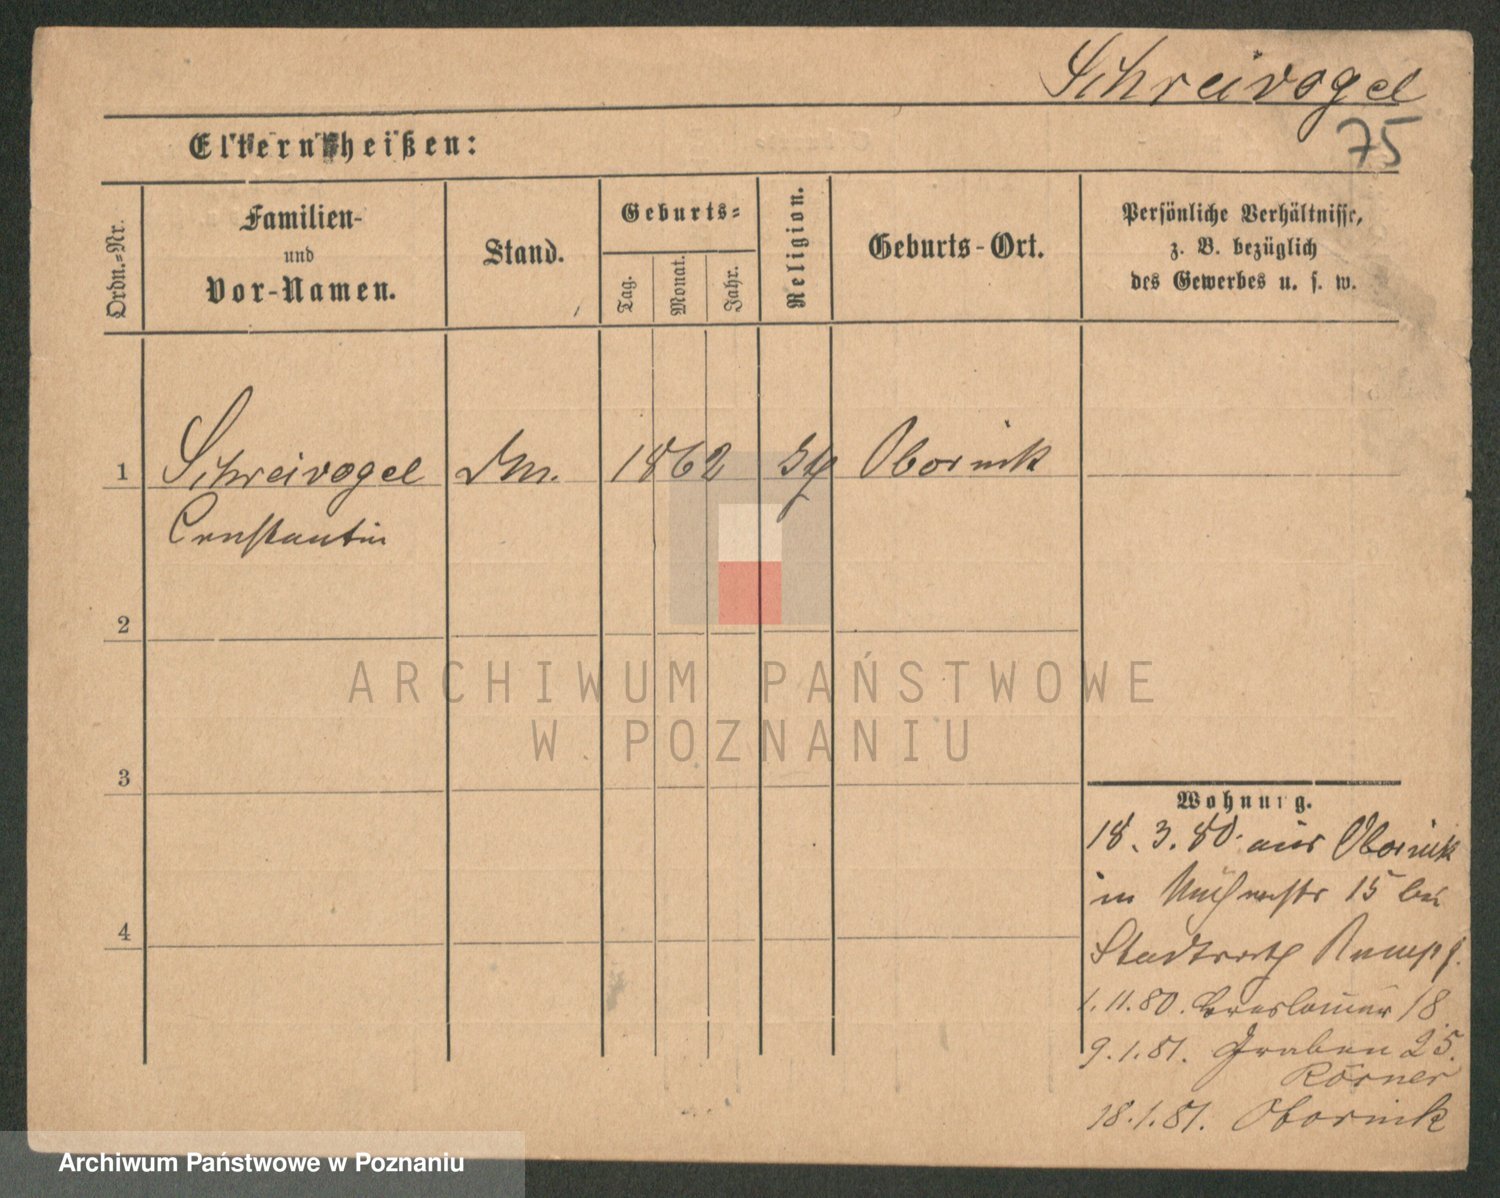 Schreivogel
75
Eltern heißen:
Ordn.-Nr.
Familien-
und
Vor-Namen.
Stand.
Geburts-
Tag.
Monat.
Jahr.
Religion.
Geburts-Ort.
Persönliche Verhältnisse,
z. B. bezüglich
des Gewerbes u. s. w.
1 Schreivogel 1862 Obornik
Constantin
2
3
4
ARCHIWUM PAŃSTWOWE
W POZNANIU
Wohnung.
18. 3. 80. aus Obornik
in 15 bei
Stadtrath
1. 11. 80. Breslauer 18
9. 1. 81. Graben 25.
Körner
18. 1. 81. Obornik
Archiwum Państwowe w Poznaniu